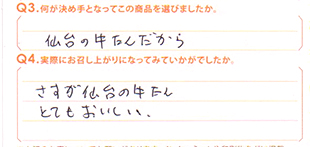 Q3.何が決め手となってこの商品を選びましたか。
仙台の牛たんだから
Q4.実際にお召し上がりになってみていかがでしたか。
さすが仙台の牛たん
とてもおいしい、